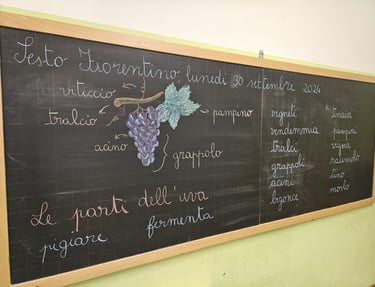 Sesto Fiorentino, lunedì 30 settembre 2024
viticcio
tralcio
pampino
acino
grappolo
Le parti dell'uva
pigiare fermenta
vigneti
vendemmia
tralci
grappoli
acini
bigonce
tinaia
pampini
vigna
racimolo
tino
mosto